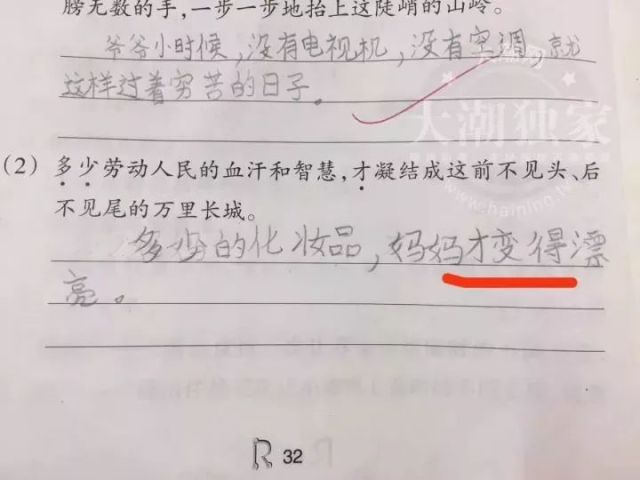 膀无数的手,一步一步地抬上这陡峭的山岭。
爷爷小时候,没有电视机,没有空调,就
这样过着穷苦的日子。
大潮独家
www.chaining.tv
(2) 多少劳动人民的血汗和智慧,才凝结成这前不见头、后
不见尾的万里长城。
多少的化妆品,妈妈才变得漂
亮。
R 32